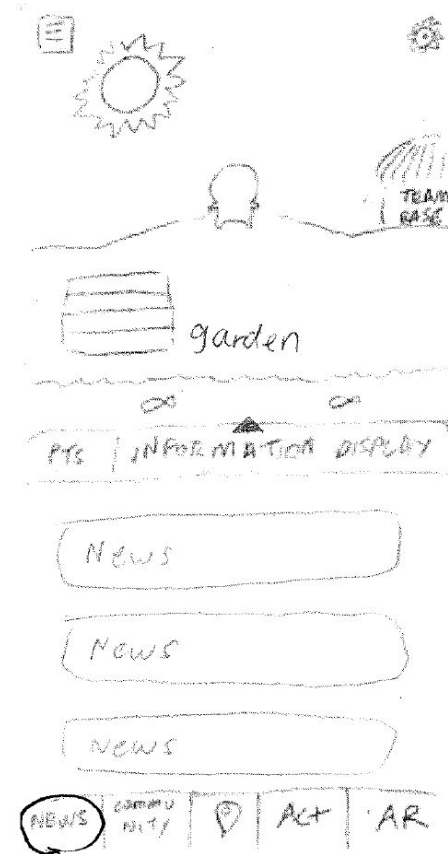 TEAM
BASE
garden
PTS INFORMATION DISPLAY
News
News
News
NEWS COMMU
NITY Act AR